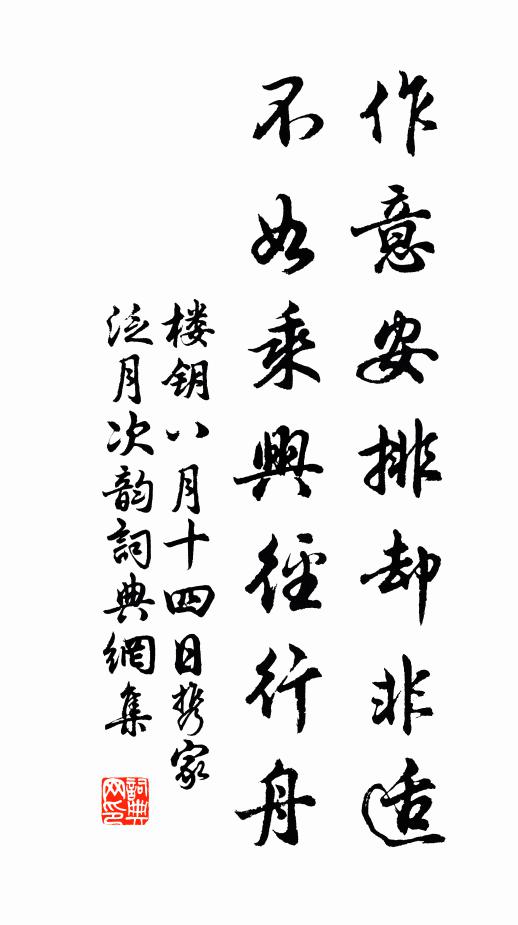 作意安排却非适
不如乘興徑行舟
楼钥八月十四日携家
泛月次韵詞典網集
詞典
网印